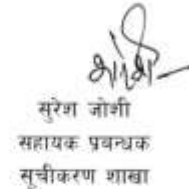 सुरेश जोशी
सहायक प्रबन्धक
सूचीकरण शाखा